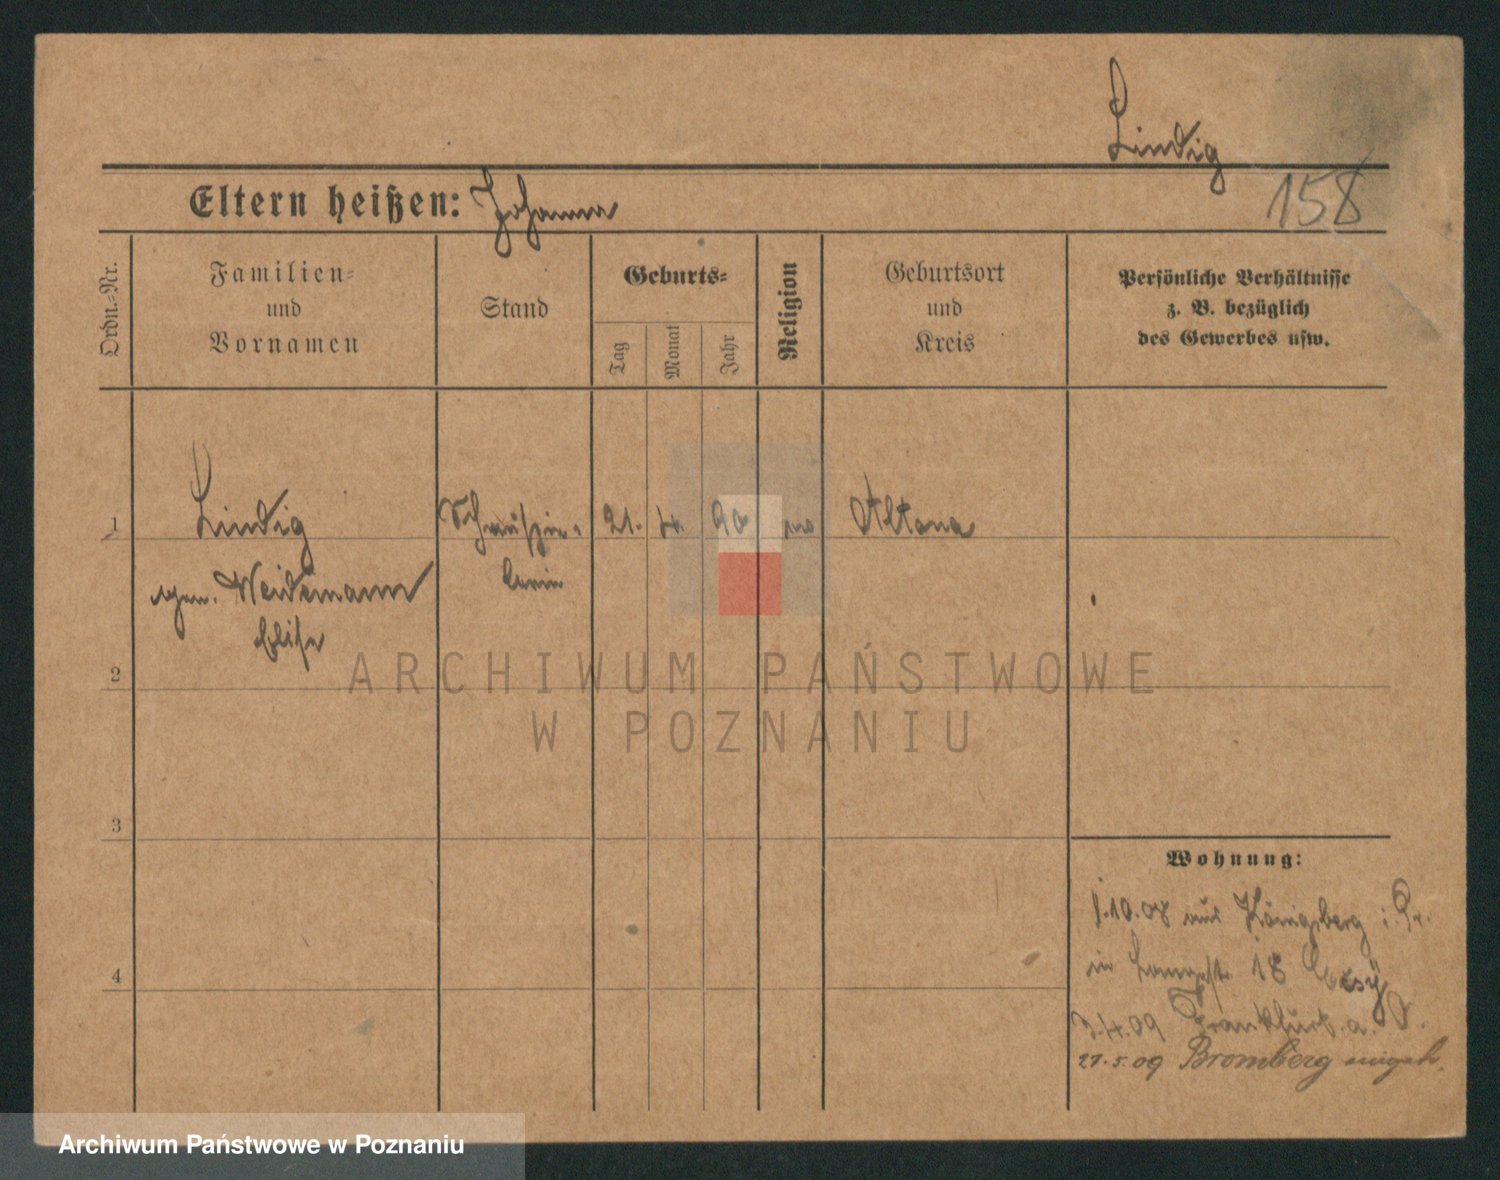 Lindig
158
Eltern heißen: Johanna
Ordn.=Nr.
Familien=
und
Vornamen
Stand
Geburts=
Tag
Monat
Jahr
Religion
Geburtsort
und
Kreis
Persönliche Verhältnisse
z. B. bezüglich
des Gewerbes usw.
1
Lindig
gen. Weidemann
Elise
Schauspie-
lerin
21. 4. 90
Altona
2
3
4
Wohnung:
1.10.08 aus Königsberg i. Pr.
in Langestr. 18
3.4.09 Frankfurt a. O.
27.5.09 Bromberg
ARCHIWUM PAŃSTWOWE
W POZNANIU
Archiwum Państwowe w Poznaniu